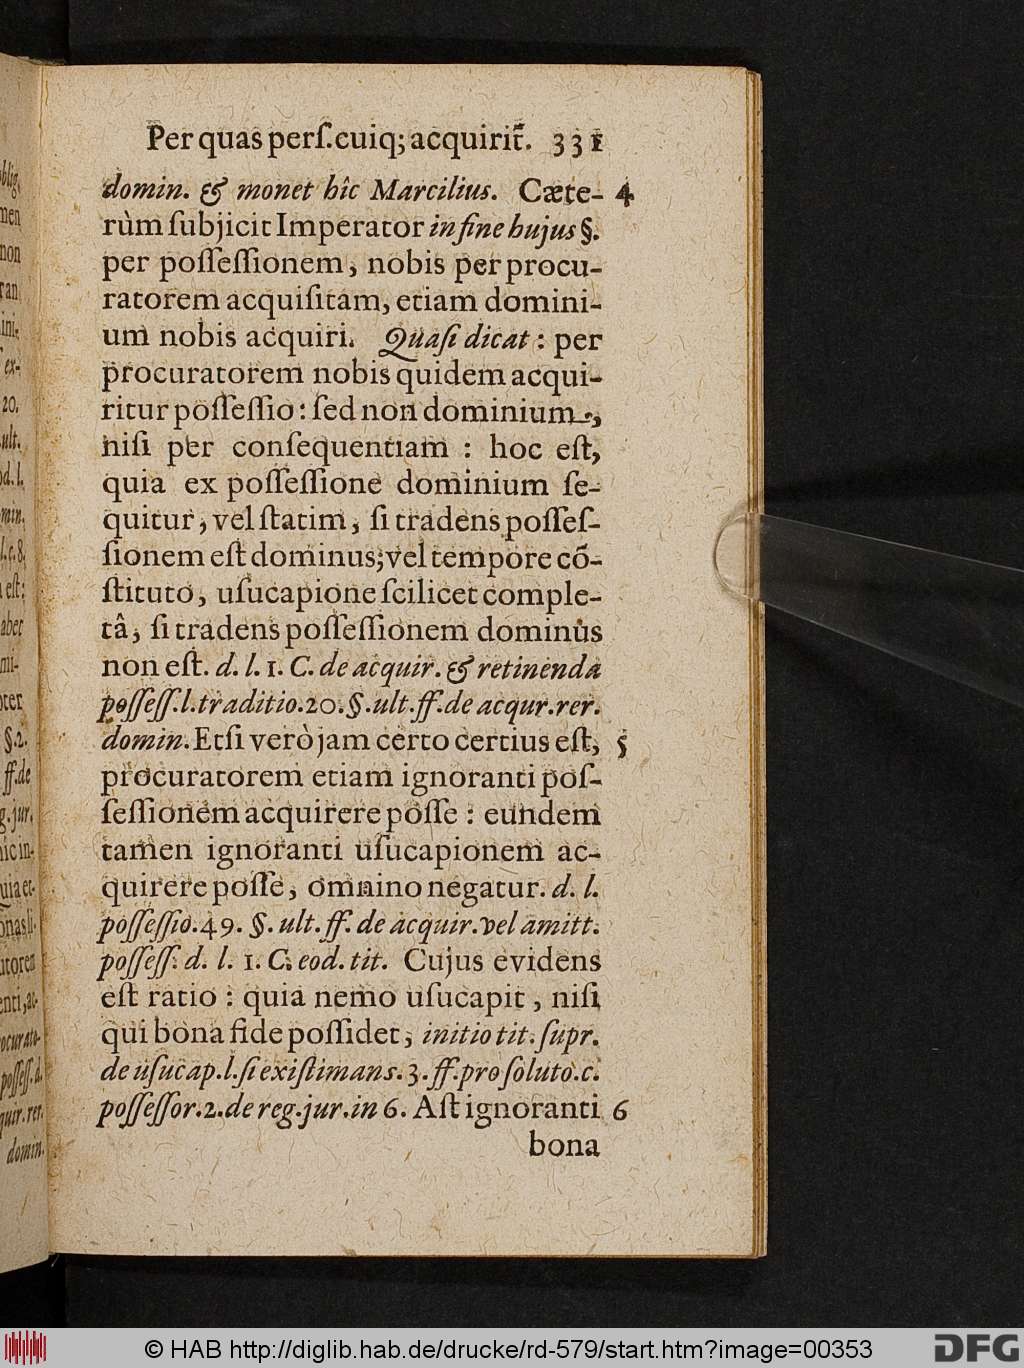 Per quas perſ. cuiq; acquirit̃. 331
domin. & monet hîc Marcilius. Cæte- 4
rùm ſubjicit Imperator in fine hujus §.
per poſſeſſionem, nobis per procu-
ratorem acquiſitam, etiam domini-
um nobis acquiri. Quaſi dicat : per
procuratorem nobis quidem acqui-
ritur poſſeſſio : ſed non dominium,
niſi per conſequentiam : hoc eſt,
quia ex poſſeſſione dominium ſe-
quitur, vel ſtatim, ſi tradens poſſeſ-
ſionem eſt dominus; vel tempore cõ-
ſtituto, uſucapione ſcilicet comple-
tâ, ſi tradens poſſeſſionem dominus
non eſt. d. l. 1. C. de acquir. & retinenda
poſſeſſ. l. traditio. 20. §. ult. ff. de acqur. rer.
domin. Etſi verò jam certo certius eſt, 5
procuratorem etiam ignoranti poſ-
ſeſſionem acquirere poſſe : eundem
tamen ignoranti uſucapionem ac-
quirere poſſe, omnino negatur. d. l.
poſſeſſio. 49. §. ult. ff. de acquir. vel amitt.
poſſeſſ. d. l. 1. C. eod. tit. Cujus evidens
eſt ratio : quia nemo uſucapit, niſi
qui bona fide poſſidet, initio tit. ſupr.
de uſucap. l. ſi exiſtimans. 3. ff. pro ſoluto. c.
poſſeſſor. 2. de reg. jur. in 6. Aſt ignoranti 6
bona
non
ex-
20.
ult.
min.
eſt:
mi-
§. 2.
ff. de
domin.
© HAB http://diglib.hab.de/drucke/rd-579/start.htm?image=00353
DFG